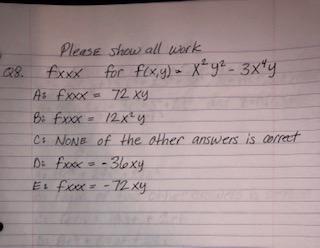 Please show all work
Q8. fxxx for f(x,y) = x²y² - 3x⁴y
A: fxxx = 72xy
B: fxxx = 12x²y
C: NONE of the other answers is correct
D: fxxx = -36xy
E: fxxx = -72xy